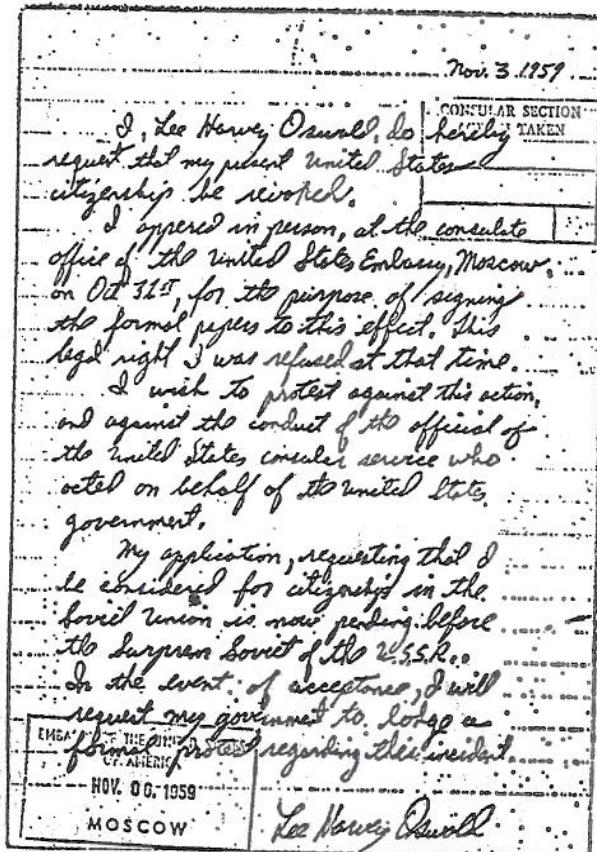 Nov. 3 1959
CONSULAR SECTION
TAKEN
I, Lee Harvey Oswald, do hereby
request that my present United States
citizenship be revoked.
I appered in person, at the consulate
office of the United States Embassy, Moscow,
on Oct 31st, for the purpose of signing
the formal papers to this effect. This
legal right I was refused at that time.
I wish to protest against this action,
and against the conduct of the official of
the United States consular service who
acted on behalf of the United States
government.
My application, requesting that I
be considered for citizenship in the
Soviet Union is now pending before
the Surprem Soviet of the U.S.S.R..
In the event of acceptance, I will
request my government to lodge a
formal protest regarding this incident.
OF THE
OF AMERICA
NOV. 06. 1959
MOSCOW
Lee Harvey Oswald